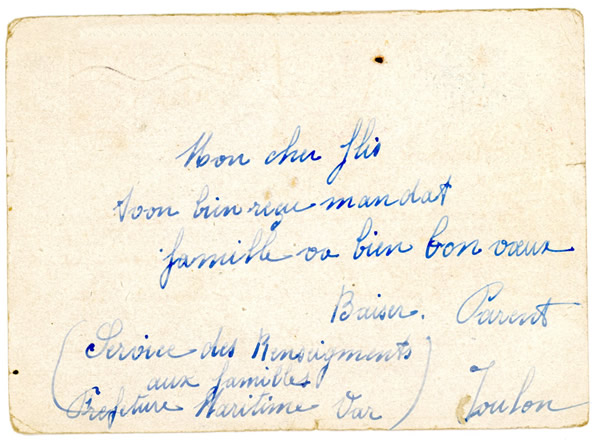 Mon cher flis
Avon bien reçe mandat
famille va bien bon vœux
Baiser. Parent
(Service des Renseigments
aux familles
Prefeture Maritime Var) Toulon